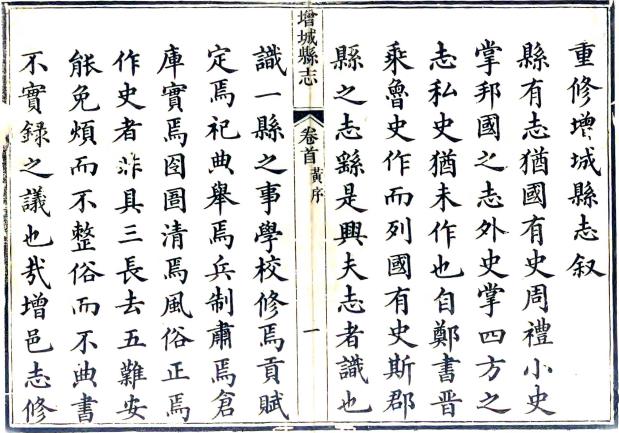 重修增城縣志叙
縣有志猶國有史周禮小史
掌邦國之志外史掌四方之
志私史猶未作也自鄭書晋
乘魯史作而列國有史斯郡
縣之志繇是興夫志者識也
增城縣志
卷首
黃序
一
識一縣之事學校修焉貢賦
定焉祀典舉焉兵制肅焉倉
庫實焉囹圄清焉風俗正焉
作史者非具三長去五難安
能免煩而不整俗而不典書
不實録之議也哉增邑志修